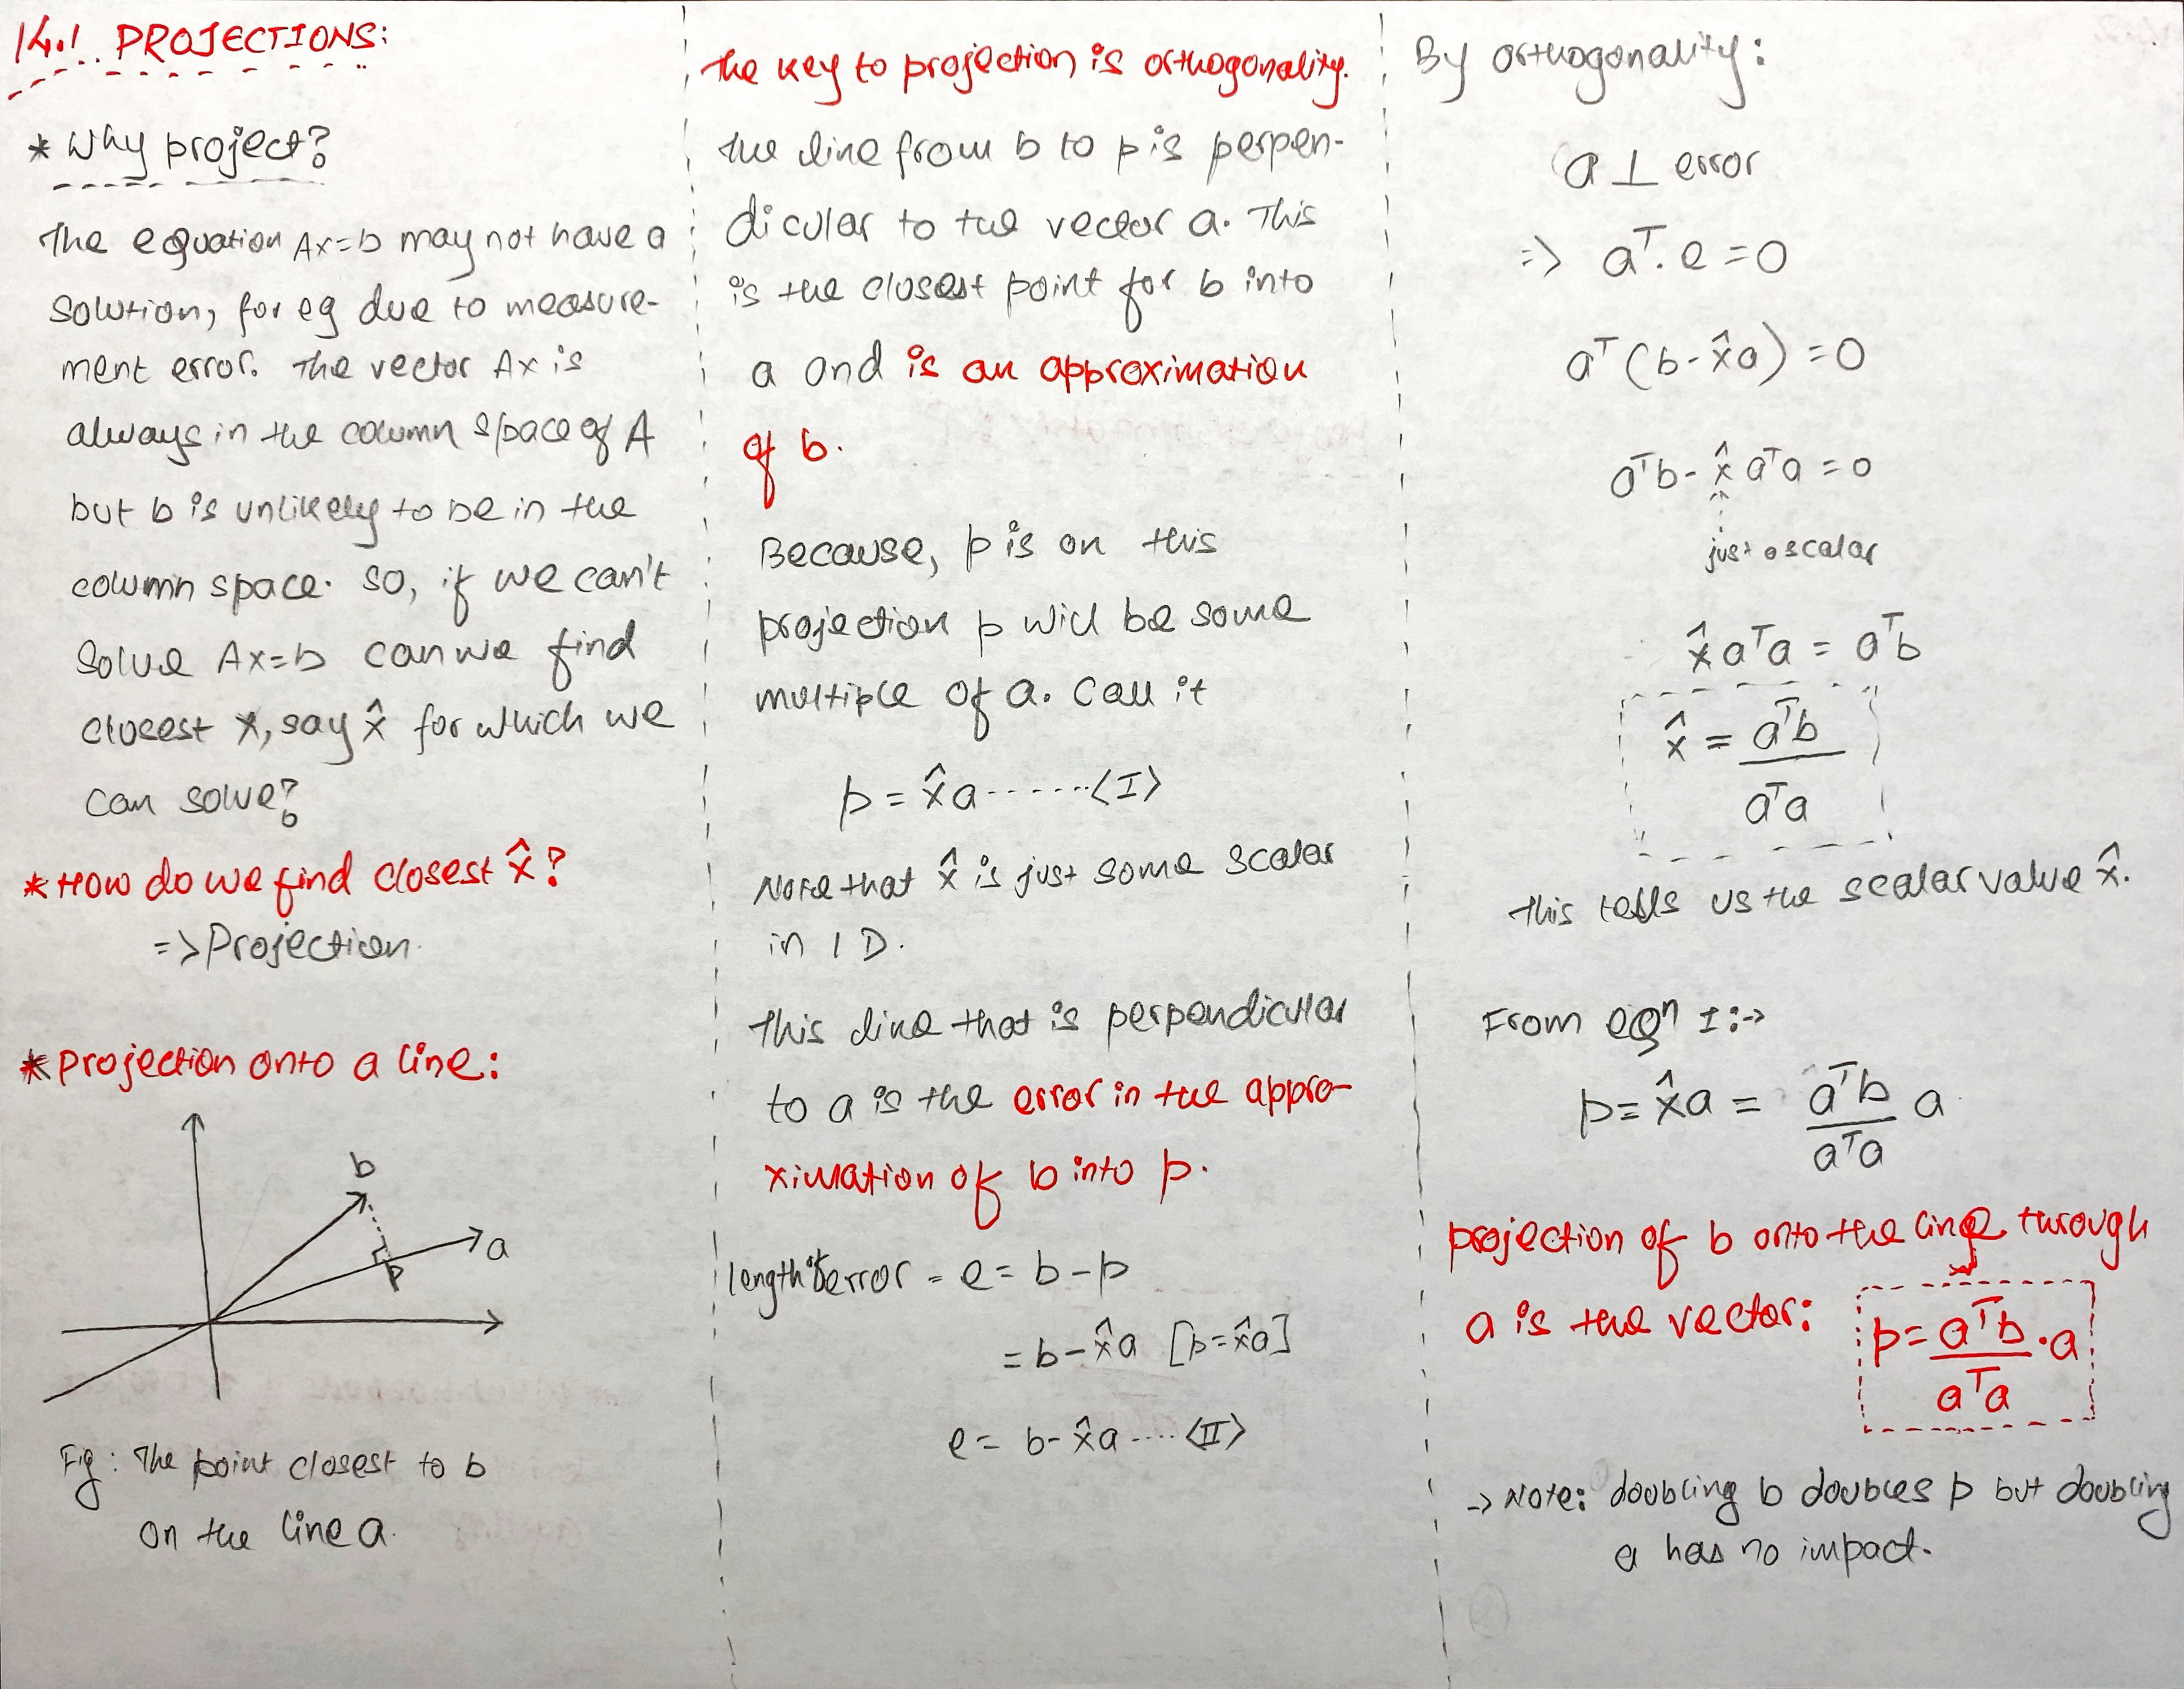 14.1. PROJECTIONS:
* Why project?
The equation Ax=b may not have a
solution, for eg due to measure-
ment error. The vector Ax is
always in the column space of A
but b is unlikely to be in the
column space. So, if we can't
solve Ax=b can we find
closest x, say x̂ for which we
can solve?
* How do we find closest x̂?
=> Projection.
* Projection onto a line:
b
a
p
Fig: The point closest to b
on the line a.
The key to projection is orthogonality.
The line from b to p is perpen-
dicular to the vector a. This
is the closest point for b into
a and is an approximation
of b.
Because, p is on this
projection p will be some
multiple of a. Call it
p = x̂a ------<I>
Note that x̂ is just some scalar
in 1D.
This line that is perpendicular
to a is the error in the appro-
ximation of b into p.
length of error = e = b-p
= b-x̂a [p=x̂a]
e = b-x̂a ----<II>
By orthogonality:
a ⊥ error
=> aᵀ.e = 0
aᵀ(b-x̂a) = 0
aᵀb - x̂ aᵀa = 0
just a scalar
x̂ aᵀa = aᵀb
x̂ = aᵀb
aᵀa
This tells us the scalar value x̂.
From eqⁿ I:->
p = x̂a = aᵀb a
aᵀa
projection of b onto the line through
a is the vector: p = aᵀb . a
aᵀa
-> Note: doubling b doubles p but doubling
a has no impact.